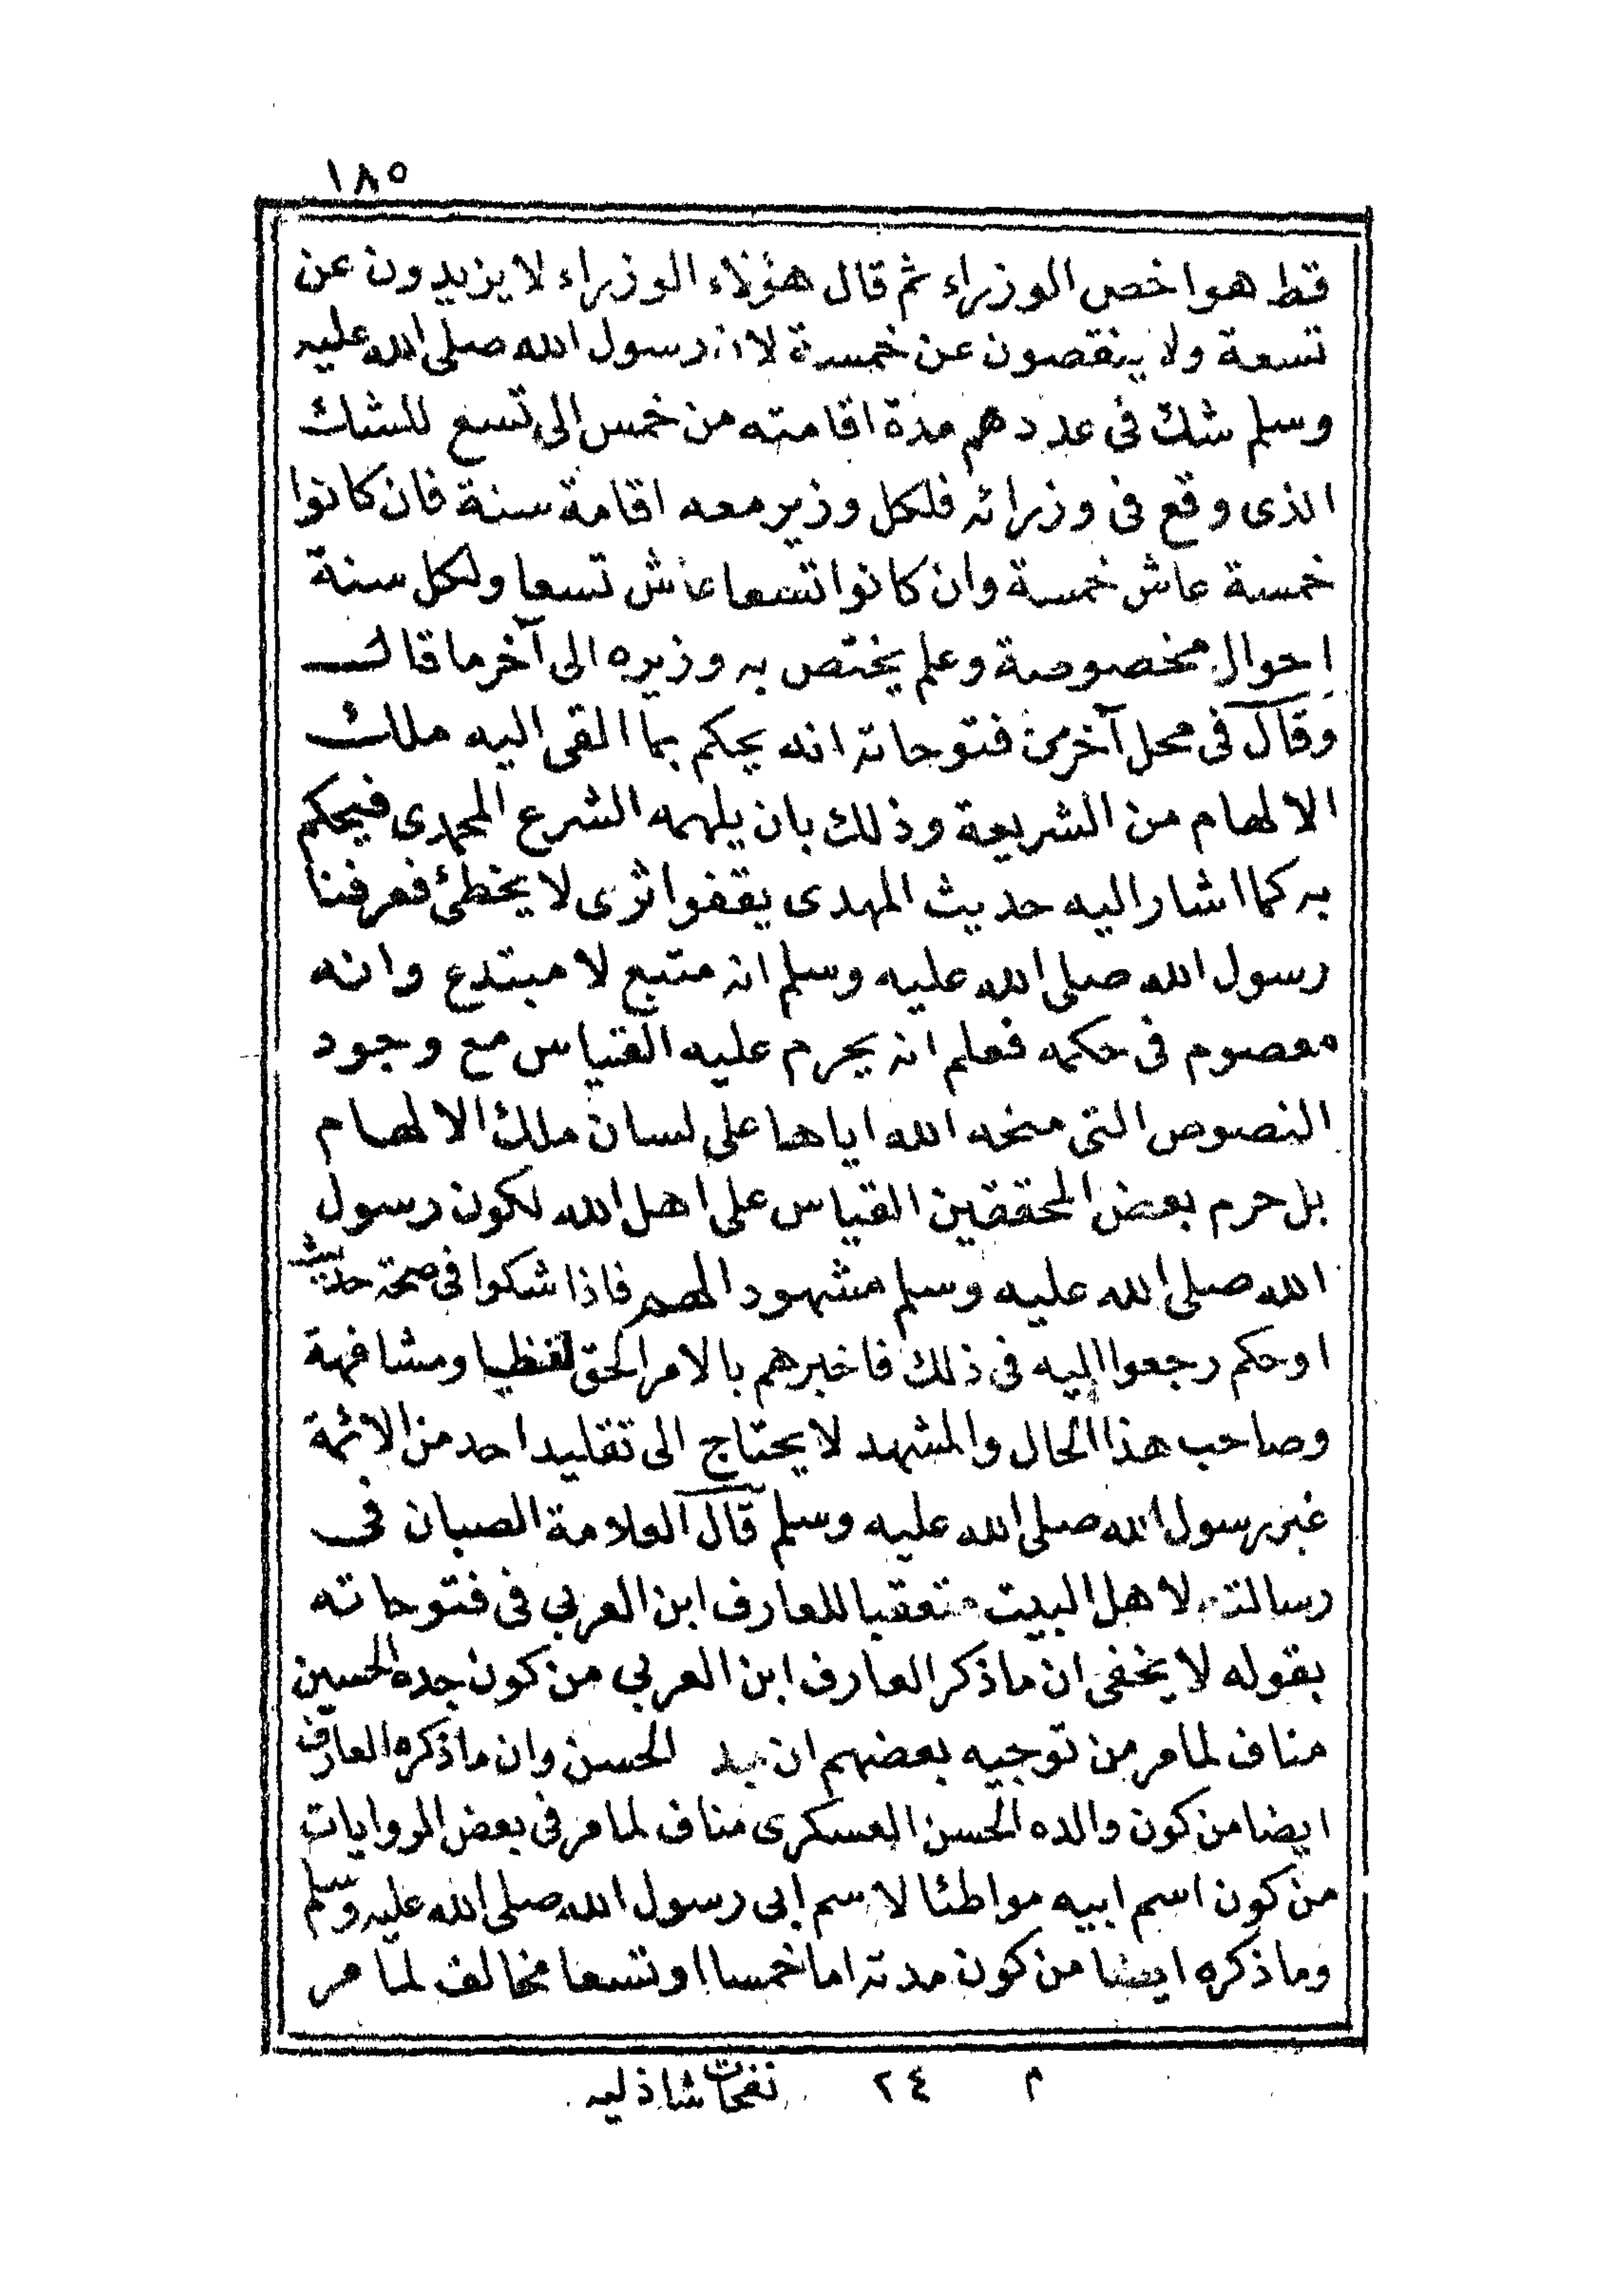 ١٨٥
قط هو اخص الوزراء ثم قال هؤلاء الوزراء لا يزيدون عن
تسعة ولا ينقصون عن خمسة لان رسول الله صلى الله عليه
وسلم شك فى عددهم مدة اقامته من خمس الى تسع للشك
الذى وقع فى وزرائه فلكل وزير معه اقامة سنة فان كانوا
خمسة عاش خمسة وان كانوا تسعا عاش تسعا ولكل سنة
احوال مخصوصة وعلم يختص به وزيره الى آخر ما قال
وقال فى محل آخر من فتوحاته انه يحكم بما القى اليه ملك
الالهام من الشريعة وذلك بان يلهمه الشرع المحمدى فيحكم
به كما اشار اليه حديث المهدى يقفوا ثرى لا يخطئ فعرفنا
رسول الله صلى الله عليه وسلم انه متبع لا مبتدع وانه
معصوم فى حكمه فعلم انه يحرم عليه القياس مع وجود
النصوص التى منحه الله اياها على لسان ملك الالهام
بل حرم بعض المحققين القياس على اهل الله لكون رسول
الله صلى الله عليه وسلم مشهود الهم فاذا شكوا فى صحة حديث
او حكم رجعوا اليه فى ذلك فاخبرهم بالامر الحق لفظيا ومشافهة
وصاحب هذا الحال والمشهد لا يحتاج الى تقليد احد من الائمة
غير رسول الله صلى الله عليه وسلم قال العلامة الصبان فى
رسالته لاهل البيت متعقبا للعارف ابن العربي فى فتوحاته
بقوله لا يخفى ان ما ذكر العارف ابن العربي من كون جده الحسين
مناف لما مر من توجيه بعضهم ان الحسن وان ما ذكره العارف
ايضا من كون والده الحسن العسكرى مناف لما مر فى بعض الروايات
من كون اسم ابيه مواطئا لاسم ابى رسول الله صلى الله عليه وسلم
وما ذكره ايضا من كون مدته اما خمسا او تسعا مخالف لما مر
م ٢٤ نفحات شاذليه